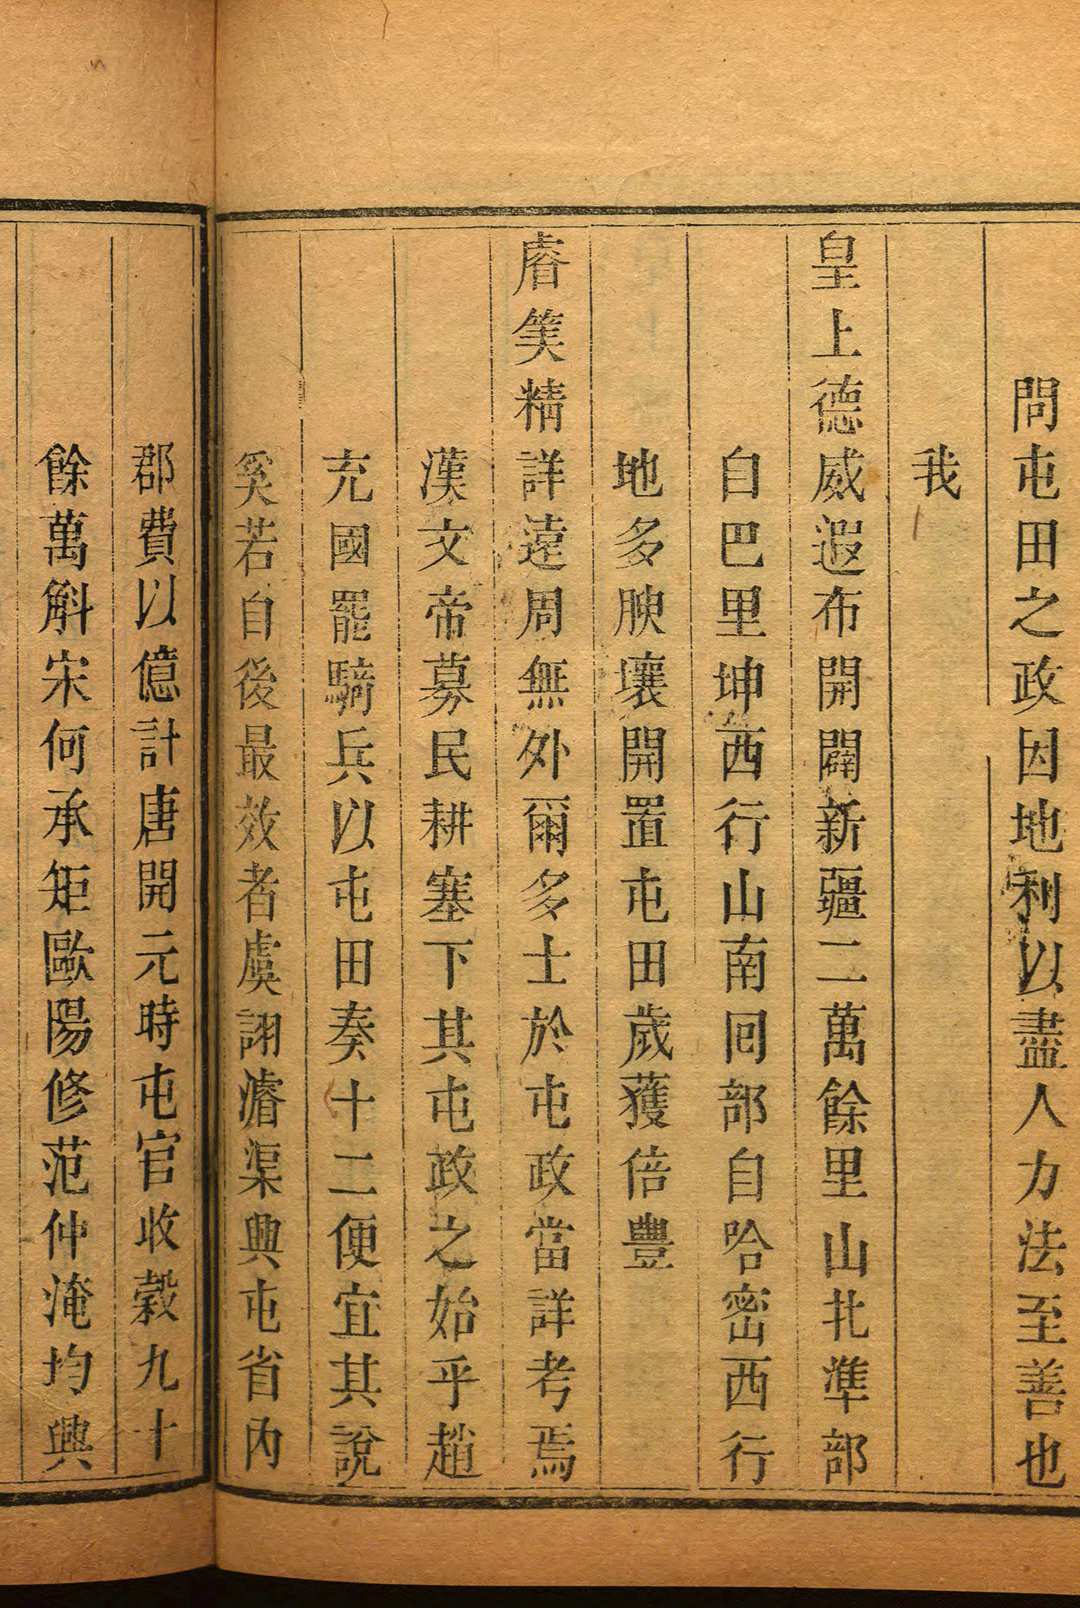 問屯田之政因地利以盡人力法至善也
我
皇上德威遐布開闢新疆二萬餘里山北準部
自巴里坤西行山南回部自哈密西行
地多腴壤開置屯田歲獲倍豐
睿筭精詳遠周無外爾多士於屯政當詳考焉
漢文帝募民耕塞下其屯政之始乎趙
充國罷騎兵以屯田奏十二便宜其說
奚若自後最效者虞詡濬渠興屯省內
郡費以億計唐開元時屯官收穀九十
餘萬斛宋何承矩歐陽修范仲淹均興